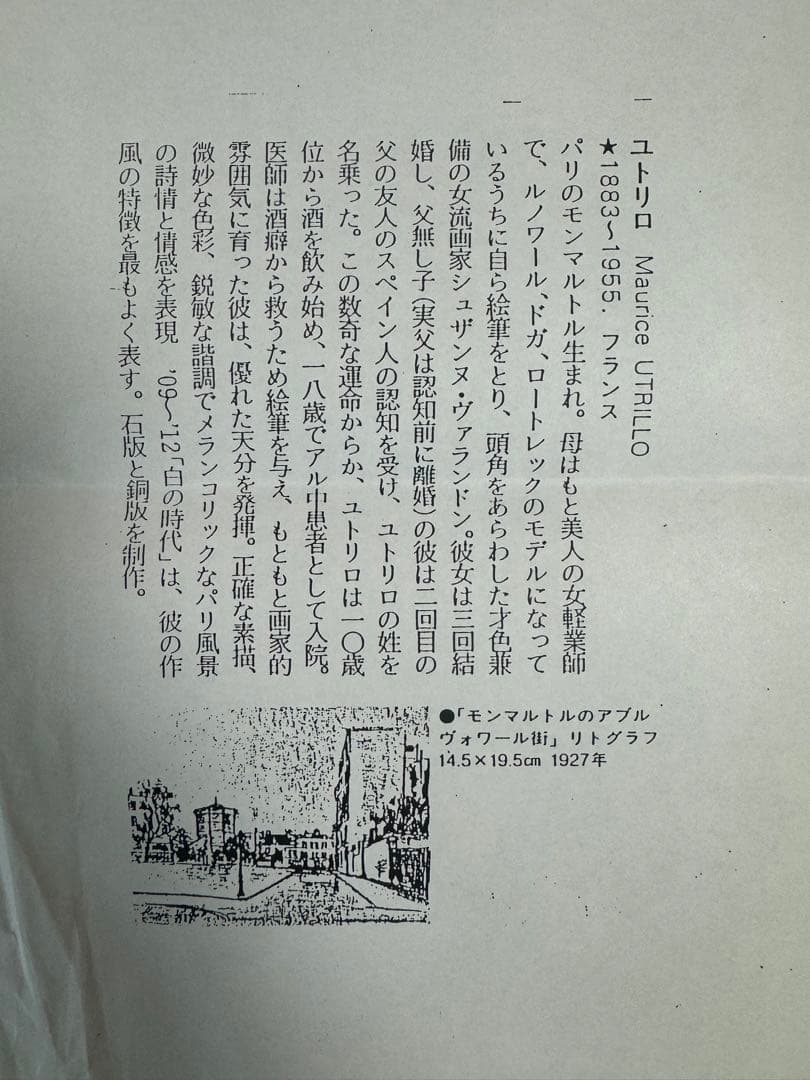 ユトリロ Maurice UTRILLO
★1883〜1955. フランス
パリのモンマルトル生まれ。母はもと美人の女軽業師
で、ルノワール、ドガ、ロートレックのモデルになって
いるうちに自ら絵筆をとり、頭角をあらわした才色兼
備の女流画家シュザンヌ・ヴァランドン。彼女は三回結
婚し、父無し子(実父は認知前に離婚)の彼は二回目の
父の友人のスペイン人の認知を受け、ユトリロの姓を
名乗った。この数奇な運命からか、ユトリロは一〇歳
位から酒を飲み始め、一八歳でアル中患者として入院。
医師は酒癖から救うため絵筆を与え、もともと画家的
雰囲気に育った彼は、優れた天分を発揮。正確な素描、
微妙な色彩、鋭敏な諧調でメランコリックなパリ風景
の詩情と情感を表現 '09〜'12「白の時代」は、彼の作
風の特徴を最もよく表す。石版と銅版を制作。
●「モンマルトルのアブル
ヴォワール街」リトグラフ
14.5×19.5cm 1927年